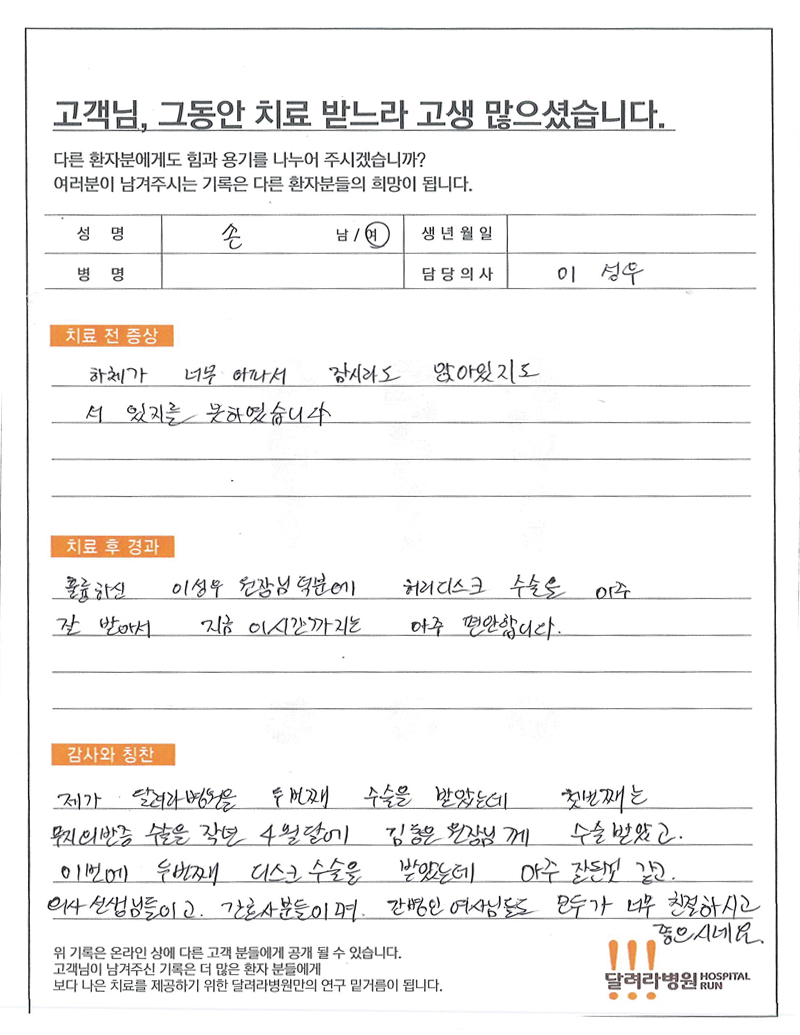 고객님, 그동안 치료 받느라 고생 많으셨습니다.
다른 환자분에게도 힘과 용기를 나누어 주시겠습니까?
여러분이 남겨주시는 기록은 다른 환자분들의 희망이 됩니다.
성 명 손 남 / 여 생년월일
병 명 담당의사 이 성우
치료 전 증상
하체가 너무 아파서 잠시라도 앉아있지도
서 있지를 못하였습니다
치료 후 경과
훌륭하신 이성우 원장님 덕분에 허리디스크 수술을 아주
잘 받아서 지금 이시간까지는 아주 편안합니다.
감사와 칭찬
제가 달려라병원을 두번째 수술을 받았는데 첫번째는
무지외반증 수술을 작년 4월달에 김 원장님께 수술받았고.
이번에 두번째 디스크 수술을 받았는데 아주 잘된것 같고.
의사 선생님들이고. 간호사분들이며. 간병인 여사님들도 모두가 너무 친절하시고
좋으시네요.
위 기록은 온라인 상에 다른 고객 분들에게 공개 될 수 있습니다.
고객님이 남겨주신 기록은 더 많은 환자 분들에게
보다 나은 치료를 제공하기 위한 달려라병원만의 연구 밑거름이 됩니다.
달려라병원 HOSPITAL RUN